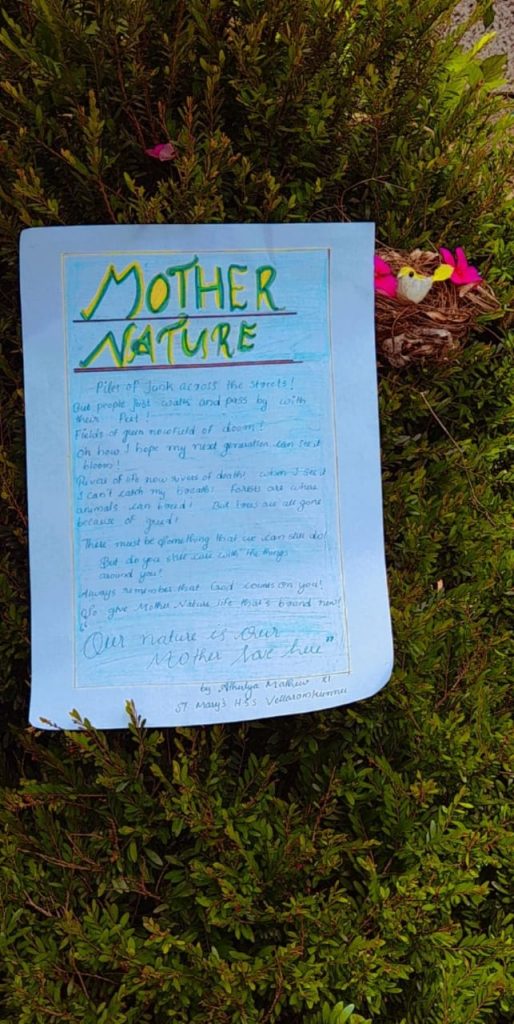 MOTHER
NATURE
Piles of Junk across the streets!
But people just walks and pass by with
their feet!
Fields of green now field of doom!
Oh how I hope my next generation can see it
bloom!
Rivers of life now rivers of death! when I see it
I can't catch my breath! Forests are where
animals can breed! But trees are all gone
because of greed!
There must be something that we can still do!
But do you still care with the things
around you!
Always remember that God counts on you!
So give Mother Nature life that's brand new!
"Our nature is Our
Mother love her"
by Atherlya Mathew XI
ST. Mary's H.S.S